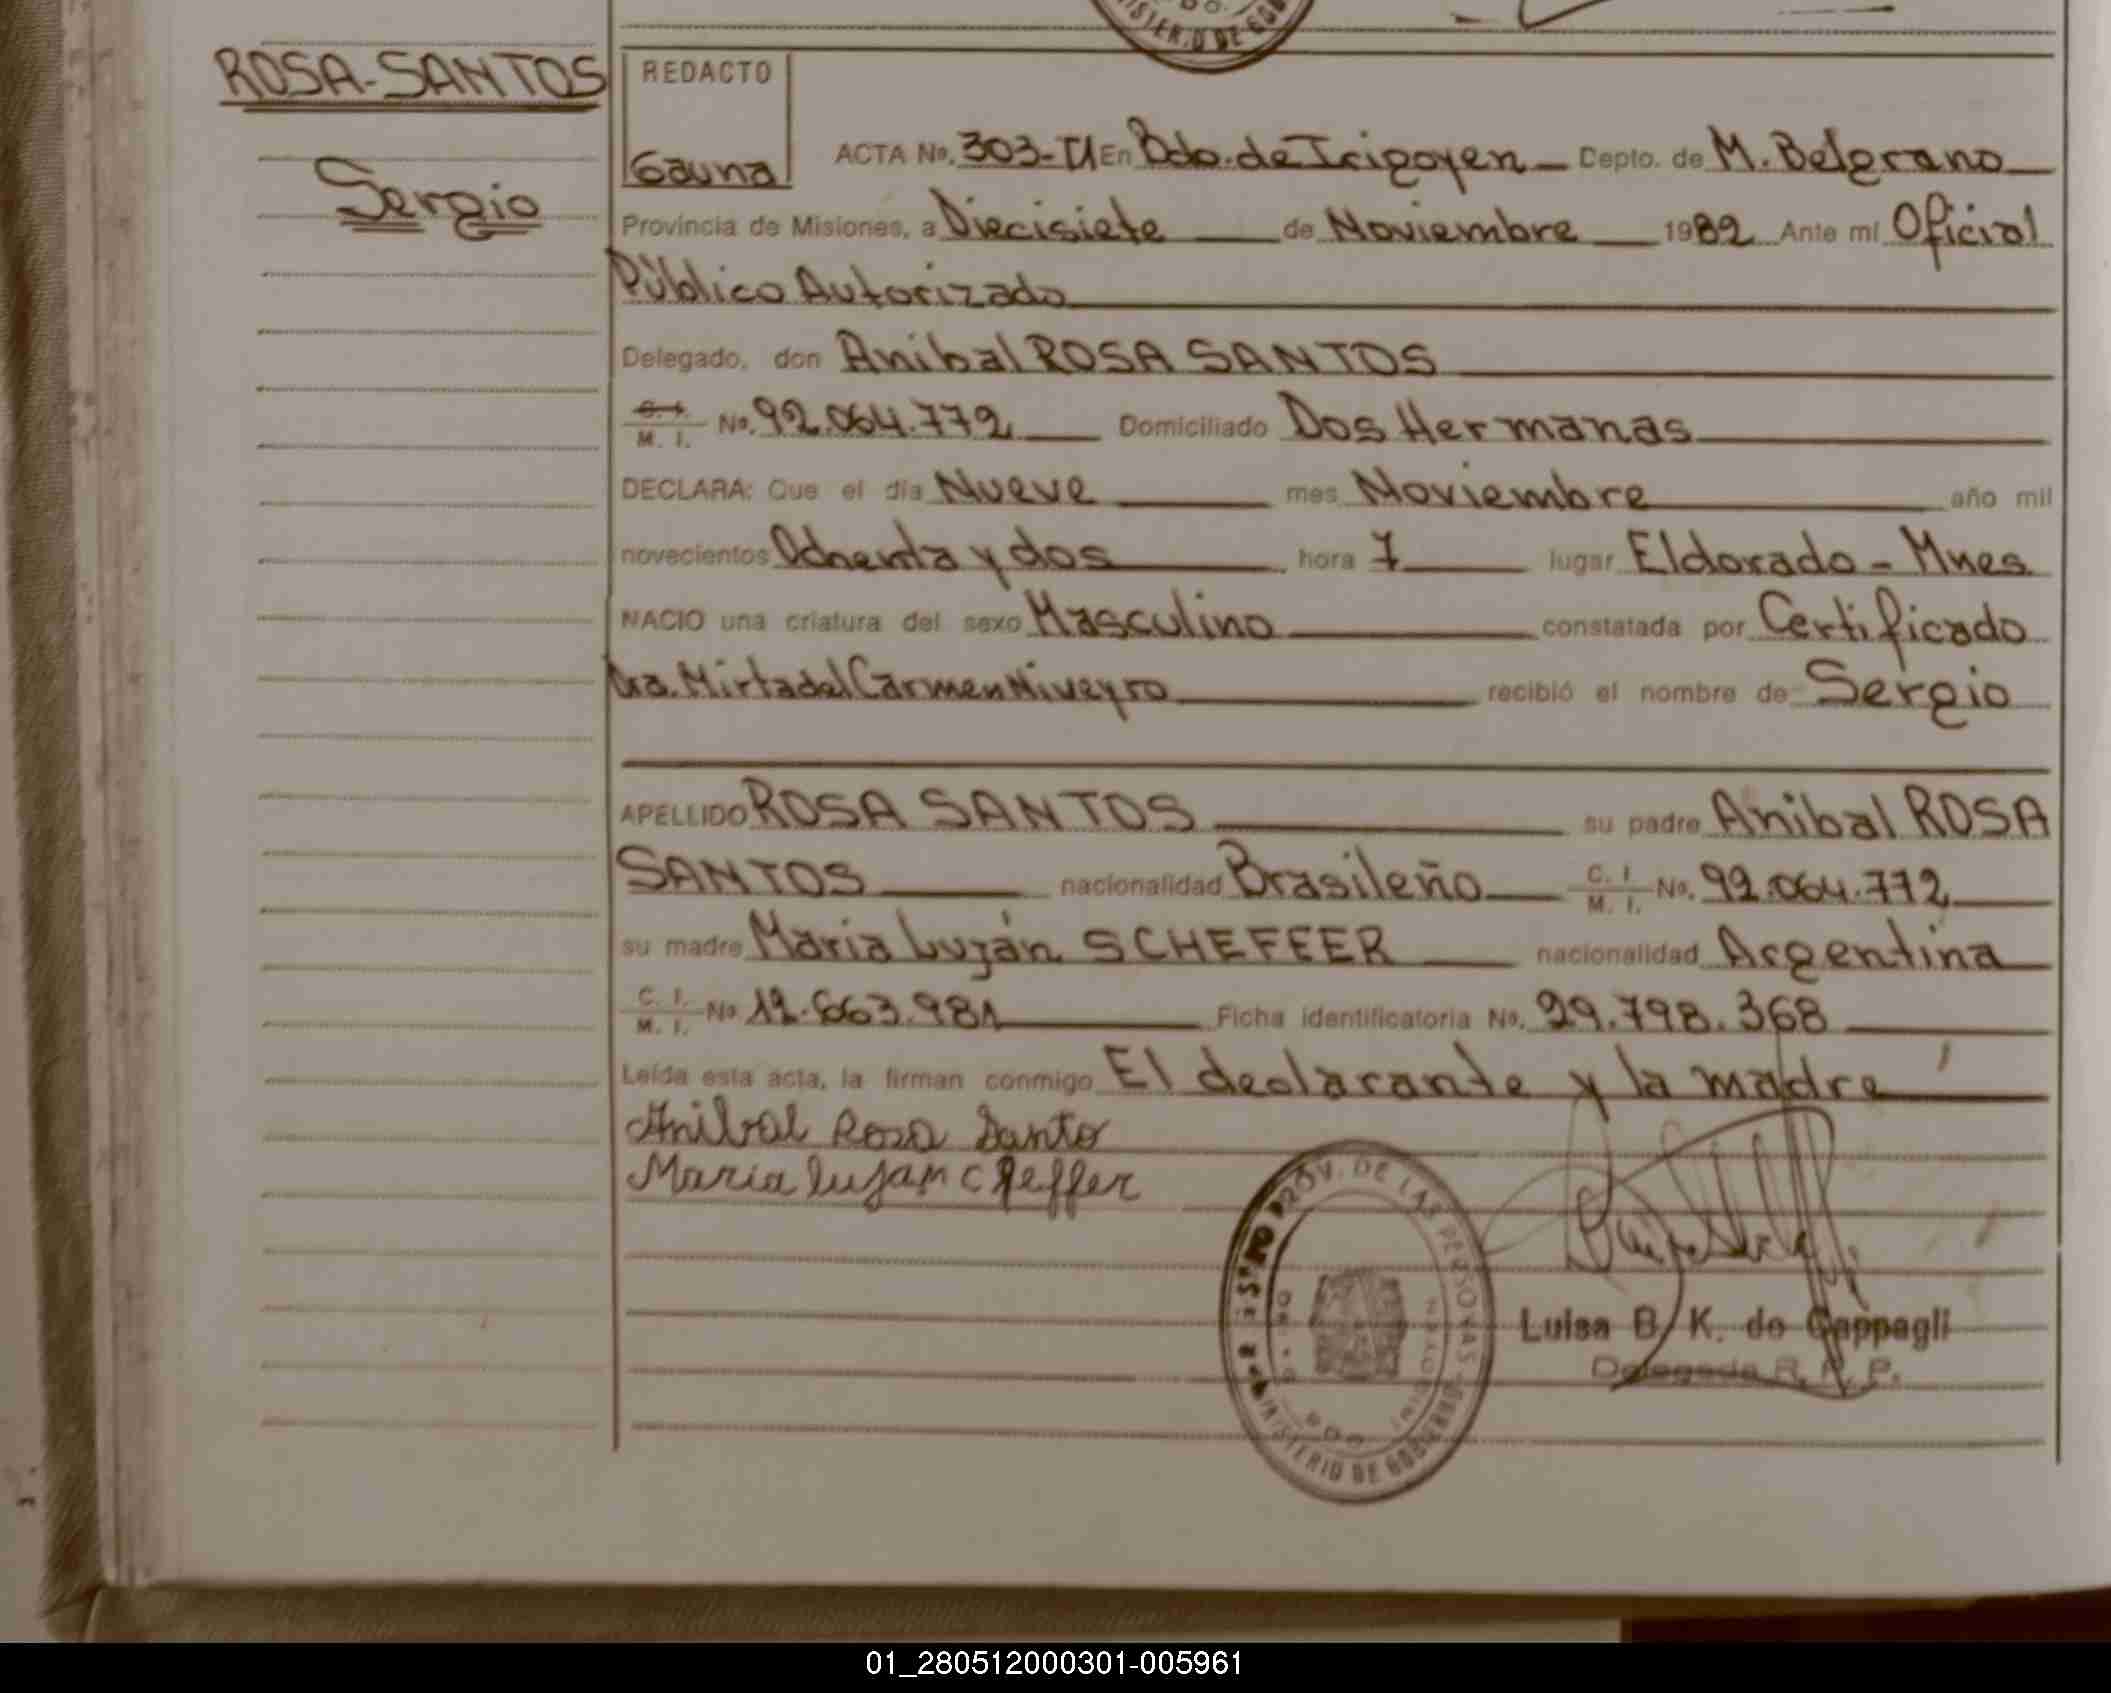 ROSA-SANTOS
Sergio
REDACTO
Gauna
ACTA No. 303-TU En Bdo. de Irigoyen Depto. de M. Belgrano
Provincia de Misiones, a Diecisiete de Noviembre 1982 Ante mí Oficial
Público Autorizado
Delegado, don Anibal ROSA SANTOS
C. I. M. I. No. 92.064.772 Domiciliado Dos Hermanas
DECLARA: Que el día Nueve mes Noviembre año mil
novecientos Ochenta y dos hora 7 lugar Eldorado - Mnes
NACIO una criatura del sexo Masculino constatada por Certificado
Dra. Mirta del Carmen Niveyro recibió el nombre de Sergio
APELLIDO ROSA SANTOS su padre Anibal ROSA
SANTOS nacionalidad Brasileño C. I. M. I. No. 92.064.772
su madre Maria Luján SCHEFEER nacionalidad Argentina
C. I. M. I. No 12.663.981 Ficha identificatoria No. 29.798.368
Leída esta acta, la firman conmigo El declarante y la madre
Anibal Rosa Santo
Maria Lujan Cheffer
PROV. DE LAS PERSONAS
MINISTERIO DE GOBIERNO
Luisa B. K. de Cappagli
Delegada R. P. P.
01_280512000301-005961